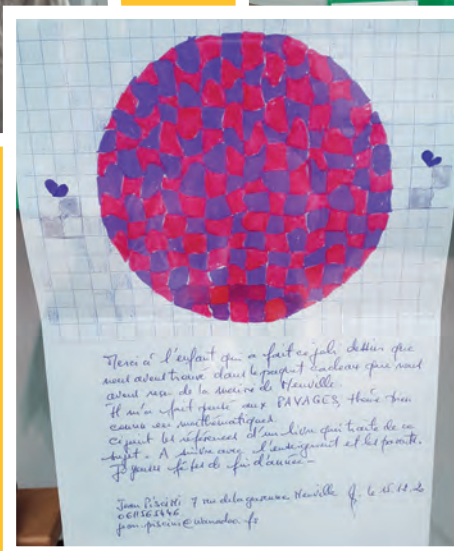 Merci à l'enfant qui a fait ce joli dessin que
nous avons trouvé dans le paquet cadeau que nous
avons reçu de la mairie de Neuville.
Il m'a fait penser aux PAVAGES, thème bien
connu en mathématiques.
ci joint les références d'un livre qui traite de ce
sujet. A suivre avec l'enseignant et les parents.
Joyeuses fêtes de fin d'année -
Jean 7 rue de la Neuville le 15.12.20